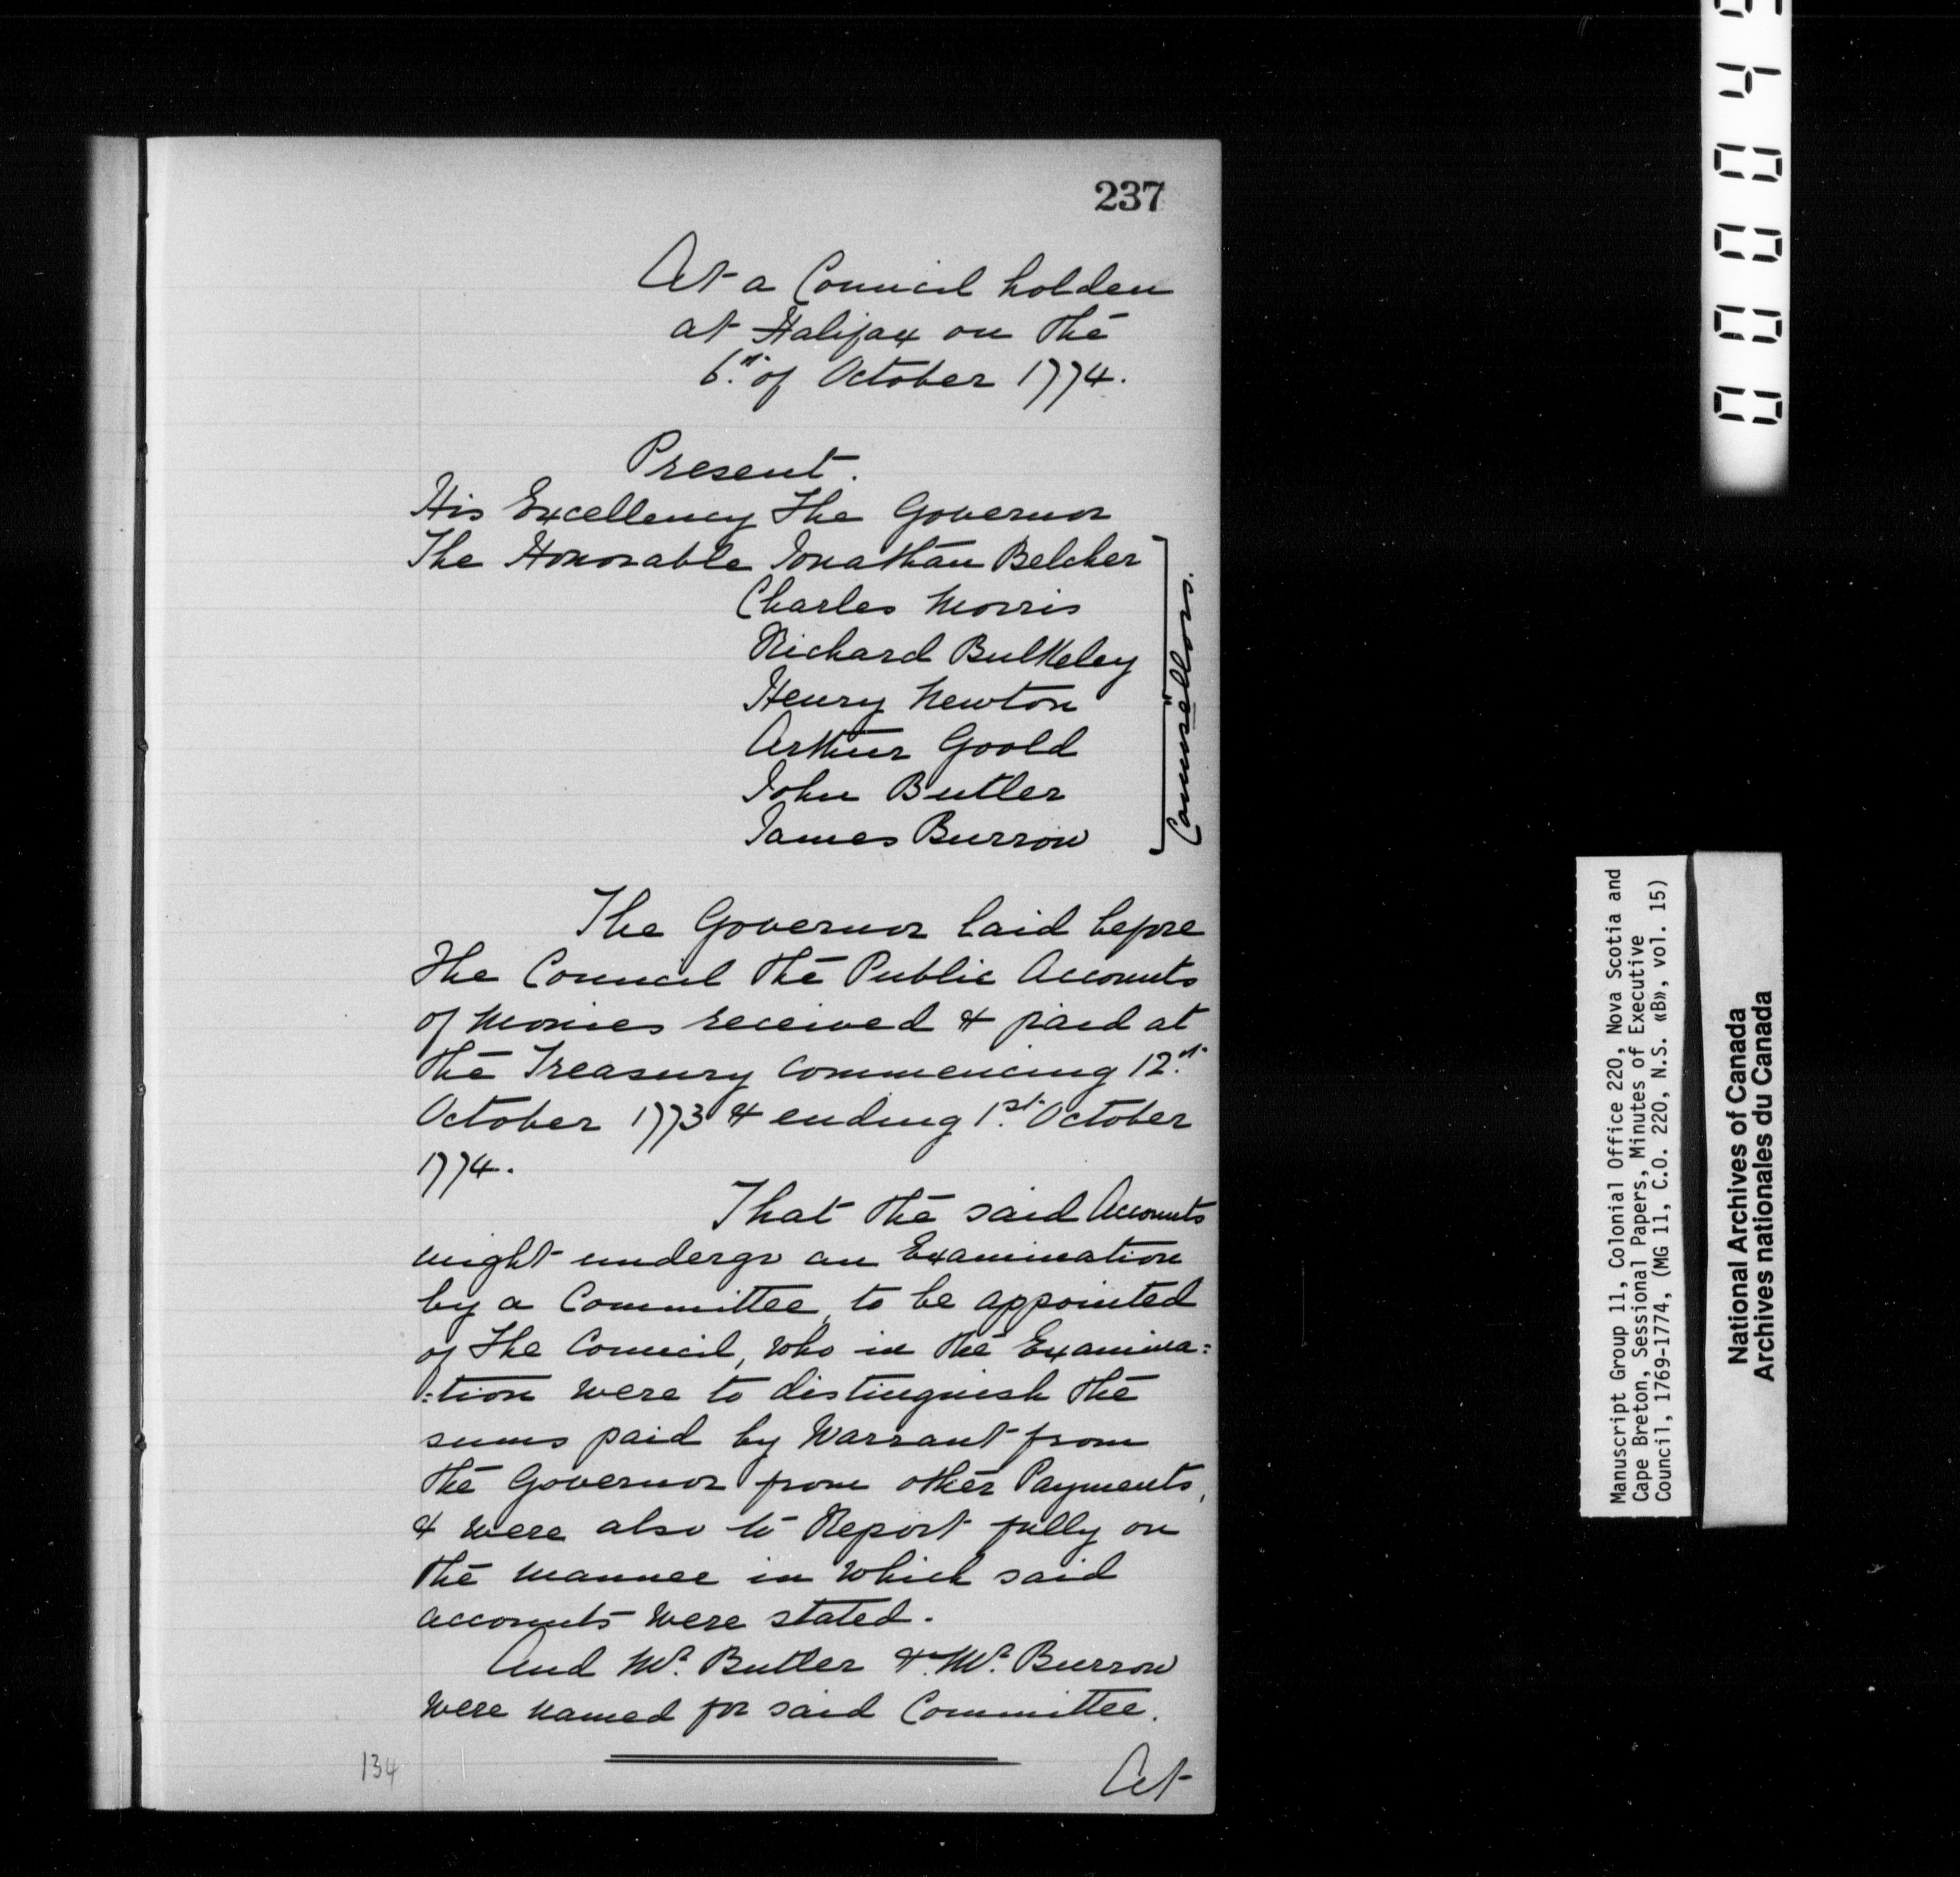 237
At a Council holden
at Halifax on the
6.th of October 1774.
Present.
His Excellency The Governor
The Honorable Jonathan Belcher
Charles Morris
Richard Bulkeley
Henry Newton
Arthur Goold
John Butler
James Burrow
Counsellors.
The Governor laid before
The Council the Public Accounts
of Monies received & paid at
the Treasury commencing 12.th
October 1773 & ending 1.st October
1774.
That the said Accounts
might undergo an Examination
by a Committee, to be appointed
of The Council, who in the Examina=
=tion were to distinguish the
sums paid by Warrant from
the Governor from other Payments,
& were also to Report fully on
the manner in which said
accounts were stated.
And Mr. Butler & Mr. Burrow
were named for said Committee.
134
At
Manuscript Group 11, Colonial Office 220, Nova Scotia and
Cape Breton, Sessional Papers, Minutes of Executive
Council, 1769-1774, (MG 11, C.O. 220, N.S. «B», vol. 15)
National Archives of Canada
Archives nationales du Canada